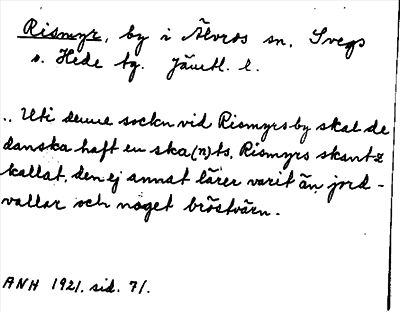 Rismyr, by i Älvros sn, Svegs
o. Hede tg. Jämtl. l.
.. Uti denne sockn vid Rismyrs by skal de
danska haft en ska(n)ts, Rismyrs skantz
kallat, den ej annat lärer varit än jord-
vallar och något bröstvärn.
ANH 1921. sid. 71.